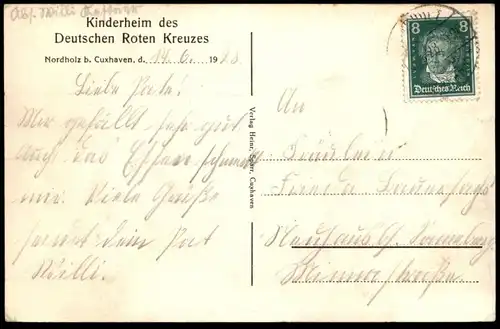 Abs. Willi
Kinderheim des
Deutschen Roten Kreuzes
Nordholz b. Cuxhaven, d. 14. 6. 1928
Liebe Pate!
Mir gefällt sehr gut
auch das Essen schmeckt
mir. Viele Grüße
sendet dein Pat
Willi.
Verlag Heinr. Cuxhaven
8 8
Deutsches Reich
An
Fräulein
Frieda
Neuhaus b. Sonneberg